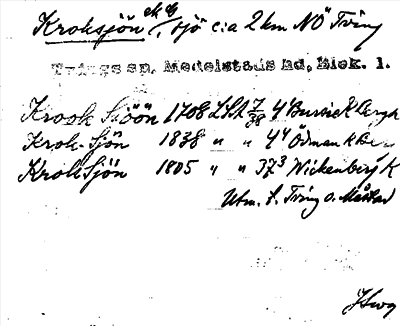 Kroksjön /, sjö c:a 2 km NÖ Tving
Tvings sn. Medelstads hd, Blek. 1.
Krook Siöön 1708 LSA 7/38 4⁴ Burrick
Krok-Sjön 1838 " " 4⁴ Ödman
KrokSjön 1805 " " 37³ Wickenberg K
Utm. f. Tving o. Måstad